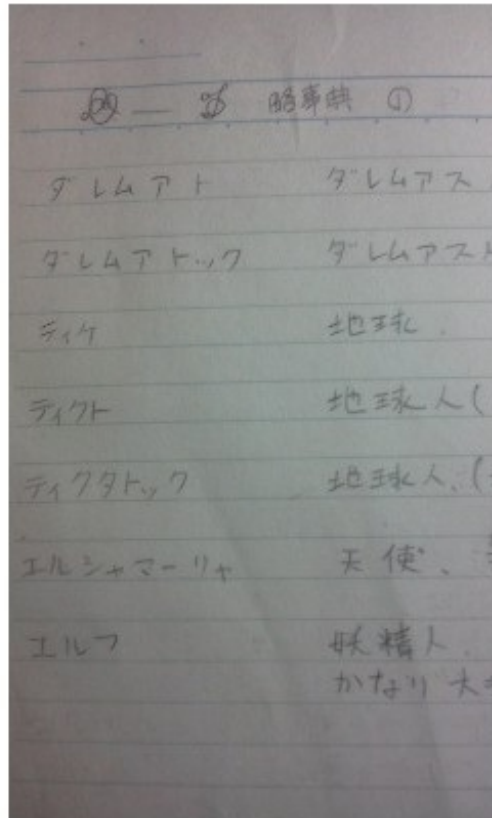 ― 略事典 の
ダレムアト ダレムアス
ダレムアトック ダレムアスト
ティケ 地球.
ティクト 地球人(
ティクタトック 地球人.(
エルシャマーリャ 天使.
エルフ 妖精人.
かなり 大